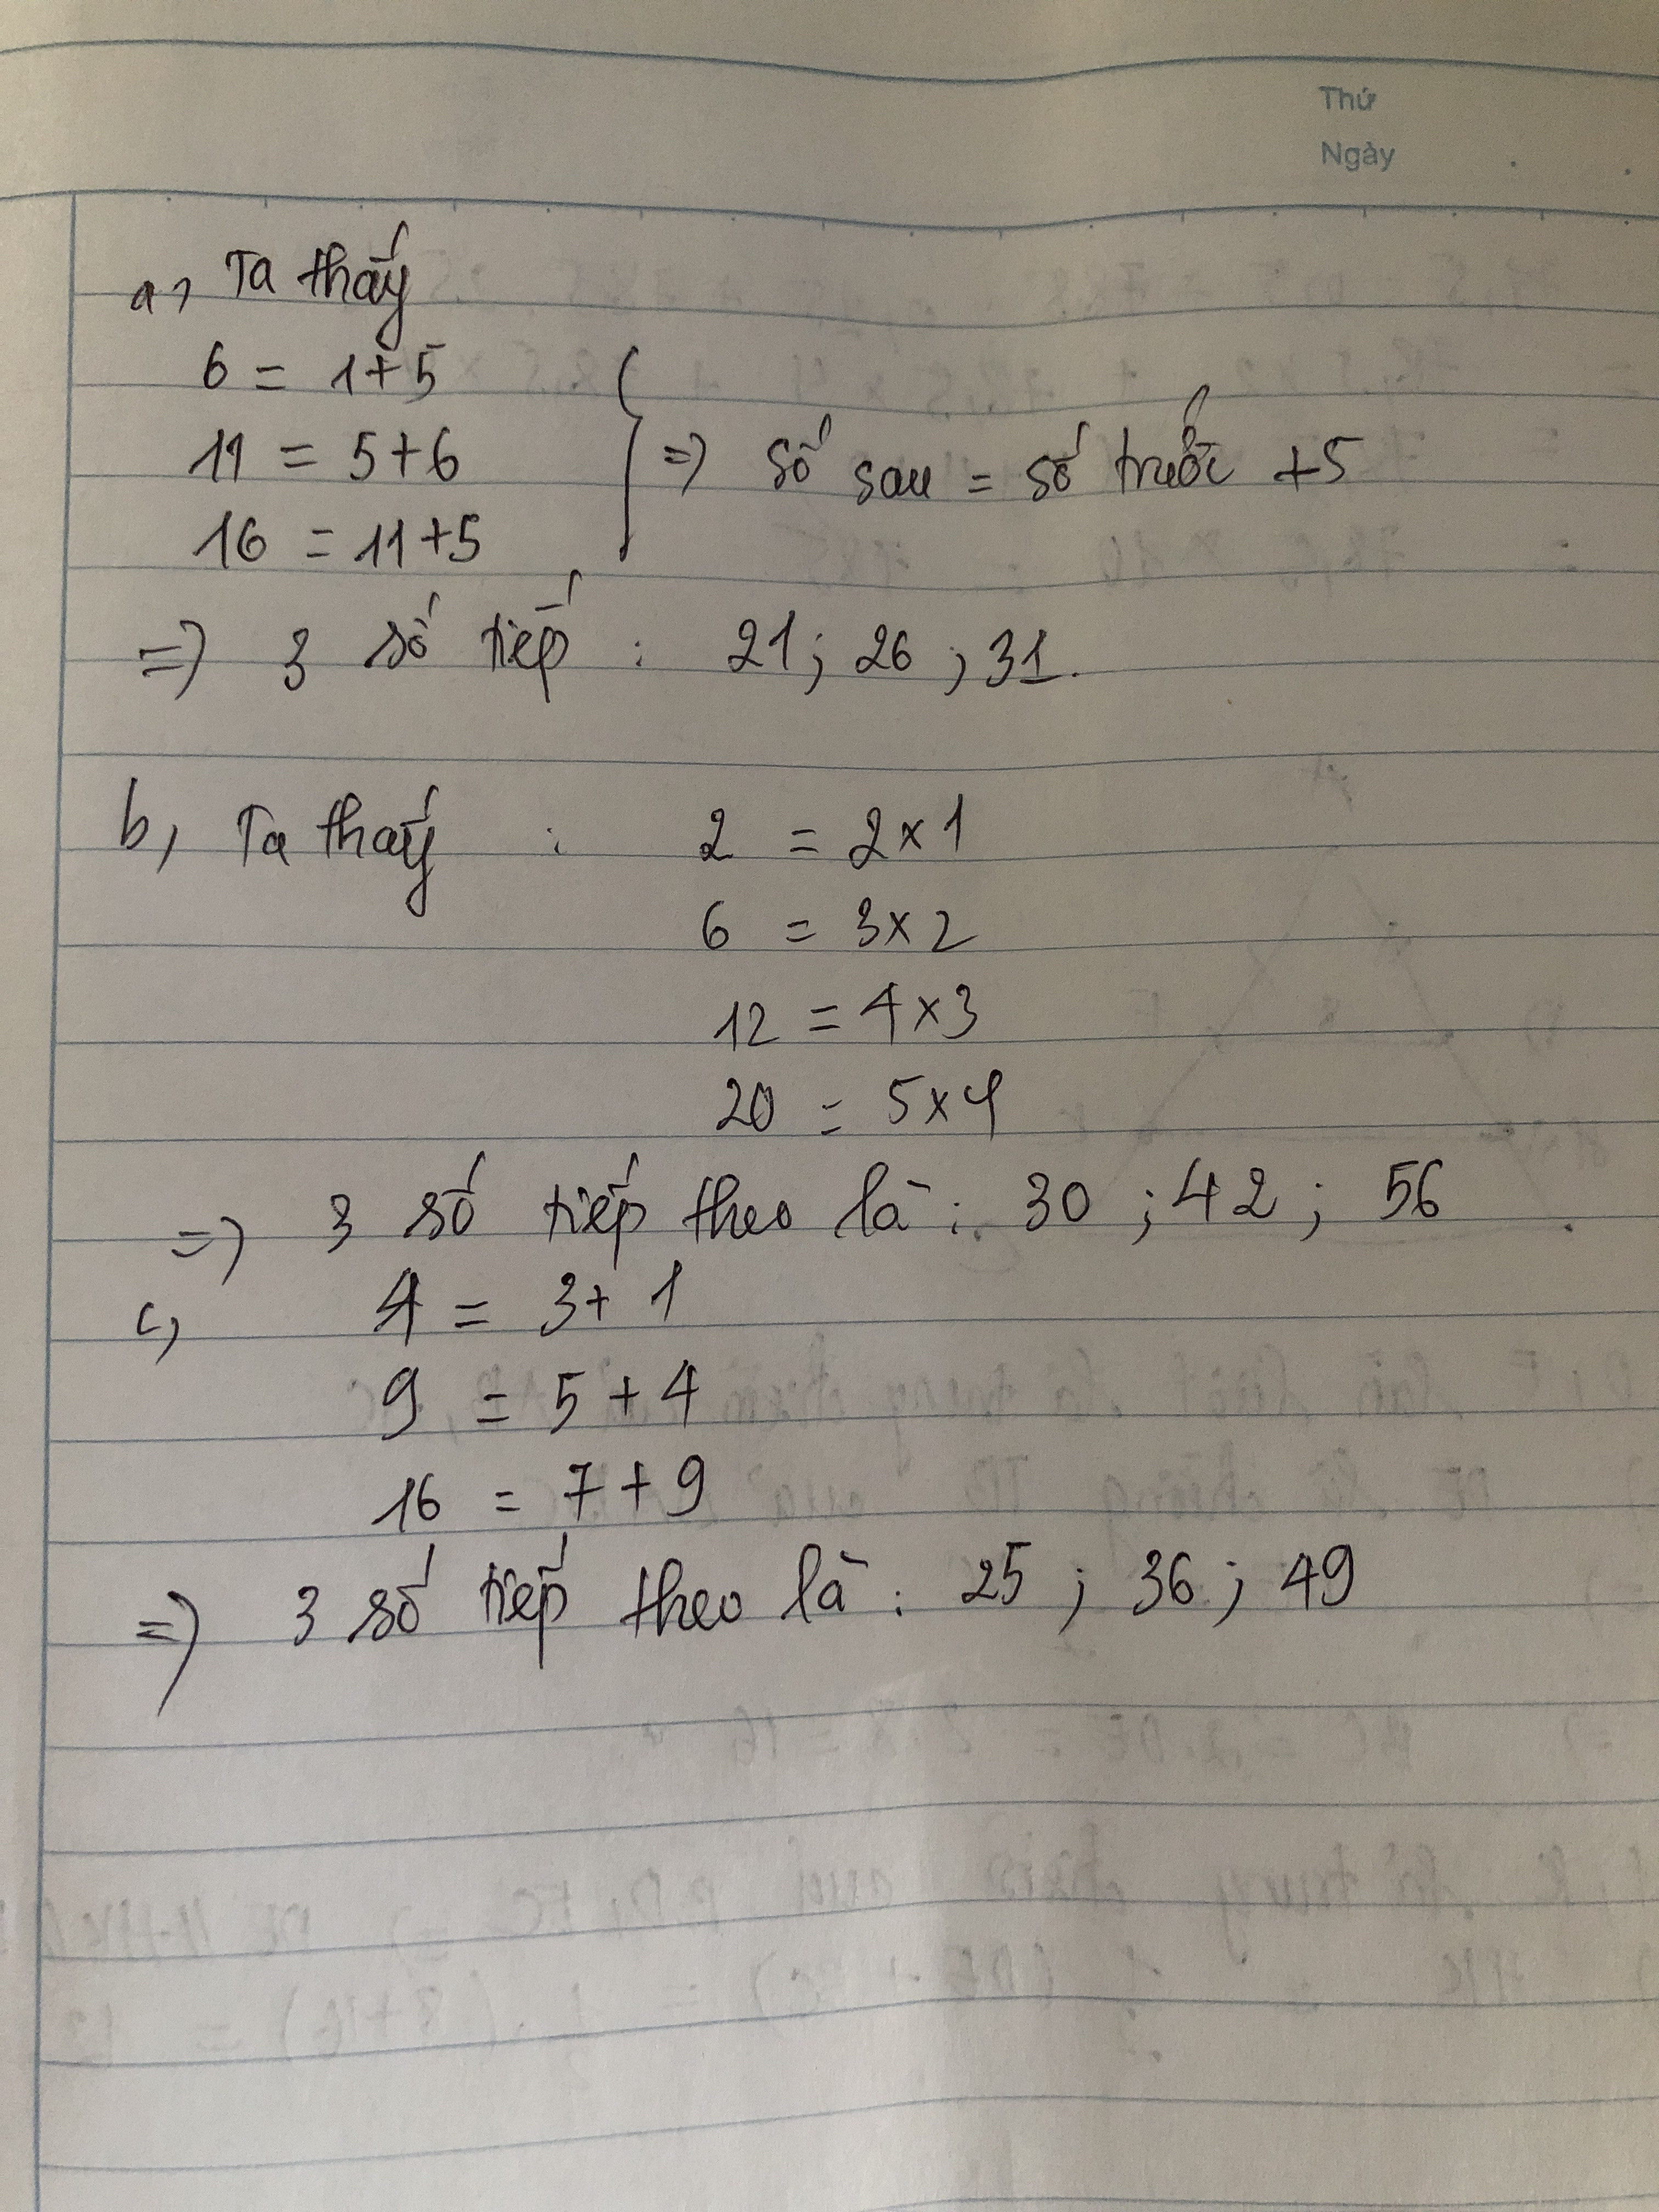 Thứ
Ngày
a, Ta thấy
6 = 1+5
11 = 5+6
16 = 11+5
=> số sau = số trước +5
=> 3 số tiếp : 21; 26 ; 31.
b, Ta thấy : 2 = 2x1
6 = 3x2
12 = 4x3
20 = 5x4
=> 3 số tiếp theo là : 30 ; 42 ; 56 .
c, 4 = 3+ 1
9 = 5 + 4
16 = 7+9
=> 3 số tiếp theo là : 25 ; 36 ; 49